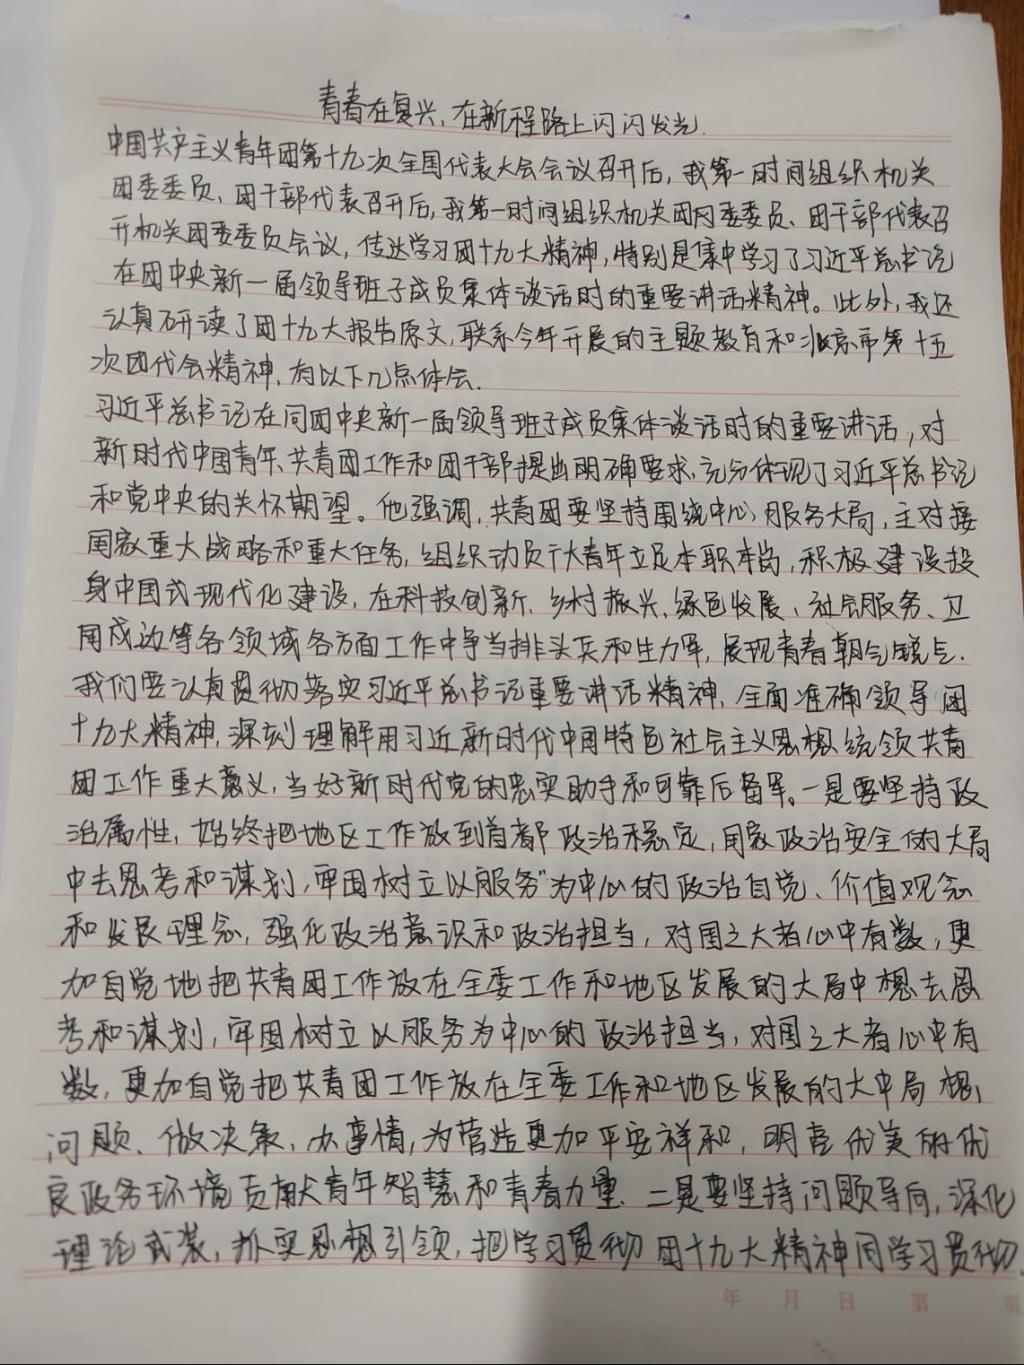 青春在复兴,在新程路上闪闪发光.
中国共产主义青年团第十九次全国代表大会会议召开后,我第一时间组织机关
团委委员、团干部代表召开后,我第一时间组织机关团网委委员、团干部代表召
开机关团委委员会议,传达学习团十九大精神,特别是集中学习了习近平总书记
在团中央新一届领导班子成员集体谈话时的重要讲话精神。此外,我还
认真研读了团十九大报告原文,联系今年开展的主题教育和北京市第十五
次团代会精神,有以下几点体会.
习近平总书记在同团中央新一届领导班子成员集体谈话时的重要讲话,对
新时代中国青年、共青团工作和团干部提出明确要求,充分体现了习近平总书记
和党中央的关怀期望。他强调,共青团要坚持围绕中心,服务大局,主对接
国家重大战略和重大任务,组织动员广大青年立足本职本岗,积极建设投
身中国式现代化建设,在科技创新、乡村振兴、绿色发展、社会服务、卫
国戍边等各领域各方面工作中争当排头兵和生力军,展现青春朝气锐气.
我们要认真贯彻落实习近平总书记重要讲话精神,全面准确领导团
十九大精神,深刻理解用习近新时代中国特色社会主义思想统领共青
团工作重大意义,当好新时代党的忠实助手和可靠后备军。一是要坚持政
治属性,始终把地区工作放到首都政治稳定,国家政治安全的大局
中去思考和谋划,牢固树立以服务"为中心的政治自觉、价值观念
和发展理念,强化政治意识和政治担当,对国之大者心中有数,更
加自觉地把共青团工作放在全委工作和地区发展的大局中想去思
考和谋划,牢固树立以服务为中心的政治担当,对国之大者心中有
数,更加自觉把共青团工作放在全委工作和地区发展的大中局想,
问题、做决策、办事情,为营造更加平安祥和,明亮优美的优
良政务环境贡献青年智慧和青春力量.二是要坚持问题导向,深化
理论武装,抓实思想引领,把学习贯彻团十九大精神同学习贯彻
年 月 日 第 页